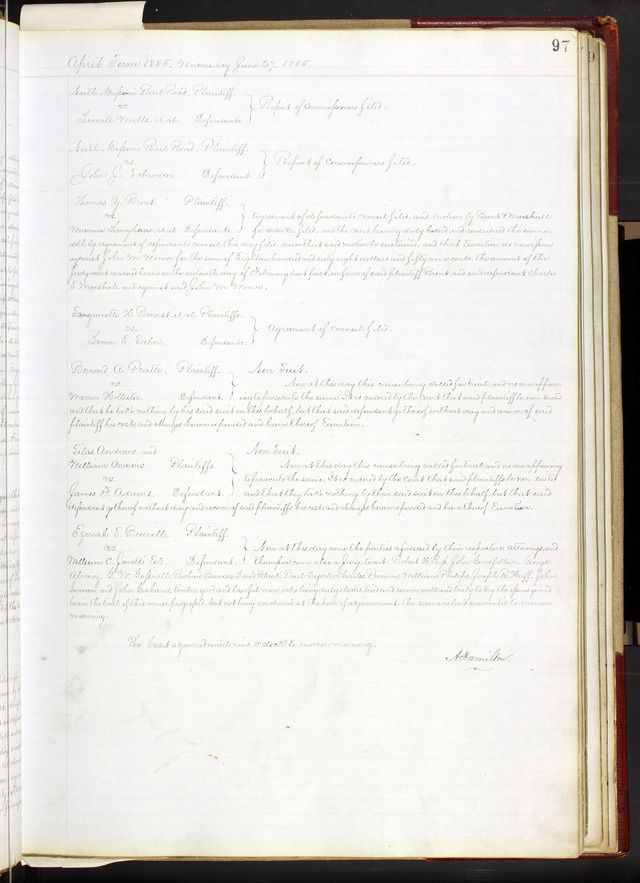 97
April Term 1855. Wednesday June 27. 1855.
North Missouri Rail Road. Plaintiff.
vs. Report of Commissioners filed.
Mills. et al. Defendants.
North Missouri Rail Road. Plaintiff.
vs. Report of Commissioners filed.
John J. Defendant.
Thomas Y. Brent. Plaintiff.
vs. Agreement of defendants counsel filed. and motion by Brent & Marshall
et al. Defendants. for execution filed, and the court having duly heard and considered the same
with by agreement of defendants counsel this day filed, order that said motion be sustained and that Execution
against John M. Wimer for the sum of Eighteen hundred and sixty eight dollars and fifty nine cents. the amount of the
judgment rendered herein on the sixteenth day of February last past, in favor of said plaintiff Brent, and said defendant Charles
E. Marshall. and against said John M. Wimer.
et. al. Plaintiffs.
vs. Agreement of Counsel filed.
E. Defendants.
Bernard A. Pratte. Plaintiff. Non Suit.
vs. Now at this day this cause being called for trial, and no one appear-
Hollister. Defendant. ing to prosecute the same. It is ordered by the Court that said plaintiff be non suited
and that he take nothing by his said suit in this behalf. but that said defendant go thereof without day and recover of said
plaintiff his costs and charges herein expended and have thereof Execution.
Silas Andrews. and Non Suit.
William Andrews Plaintiffs. Now at this day this cause being called for trial and no one appearing
vs. to prosecute the same. It is ordered by the Court that said plaintiffs be non suited
James F. Adams. Defendant. and that they take nothing by their said suit in this behalf. but that said
defendant go thereof without day and recover of said plaintiffs his costs and charges herein expended and have thereof Execution.
S. Burrell. Plaintiff.
vs. Now at this day come the parties aforesaid by their respective attorneys, and
William C. Defendant. thereupon comes also a Jury to wit. Robert H. John George
Alvarez, G. W. Richard David Black, Paul Charles William Phelps, Joseph R. Huff. John
and John twelve good and lawful men, who being duly elected tried and sworn, well and truly to try the issue joined
herein. the trial of this cause progressed, but not being concluded at the hour of adjournment. the same is laid over until to morrow
morning.
The Court adjourned until nine o clock to morrow morning.
A Hamilton.